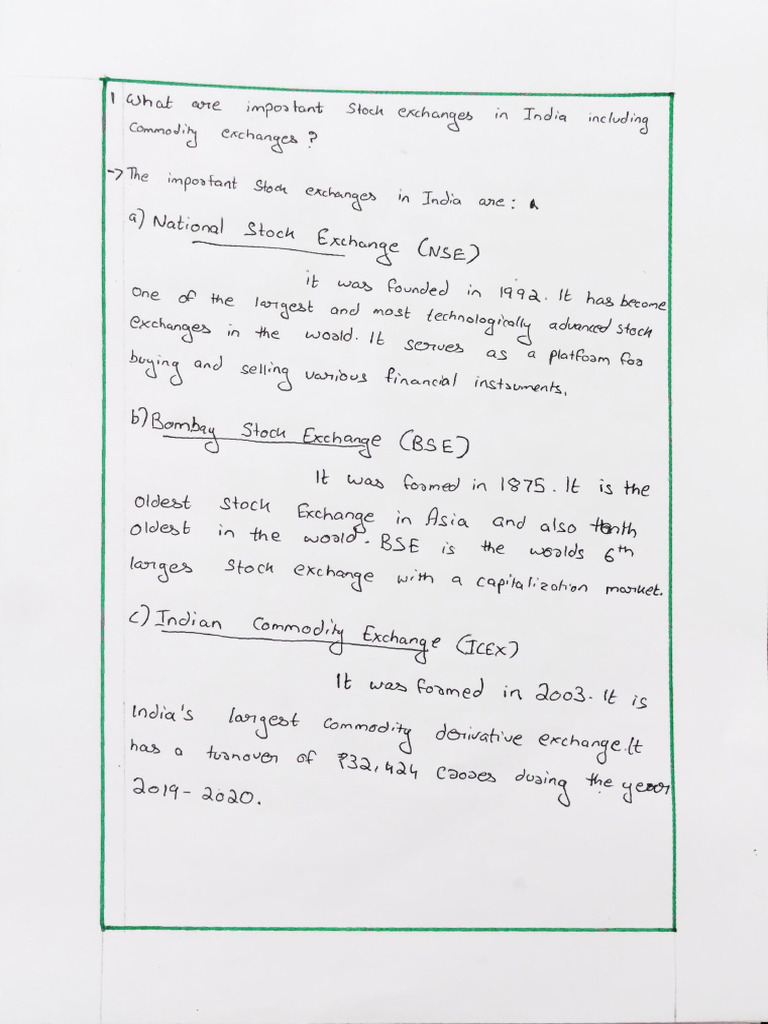 1 What are important Stock exchanges in India including
Commodity exchanges?
→ The important Stock exchanges in India are:
a) National Stock Exchange (NSE)
it was founded in 1992. It has become
One of the largest and most technologically advanced stock
exchanges in the world. It serves as a platform for
buying and selling various financial instruments.
b) Bombay Stock Exchange (BSE)
It was formed in 1875. It is the
oldest Stock Exchange in Asia and also tenth
oldest in the world. BSE is the worlds 6th
larges Stock exchange with a capitalization market.
c) Indian Commodity Exchange (ICEX)
It was formed in 2003. It is
India's largest commodity derivative exchange. It
has a turnover of ₹32,424 Crores during the year
2019-2020.